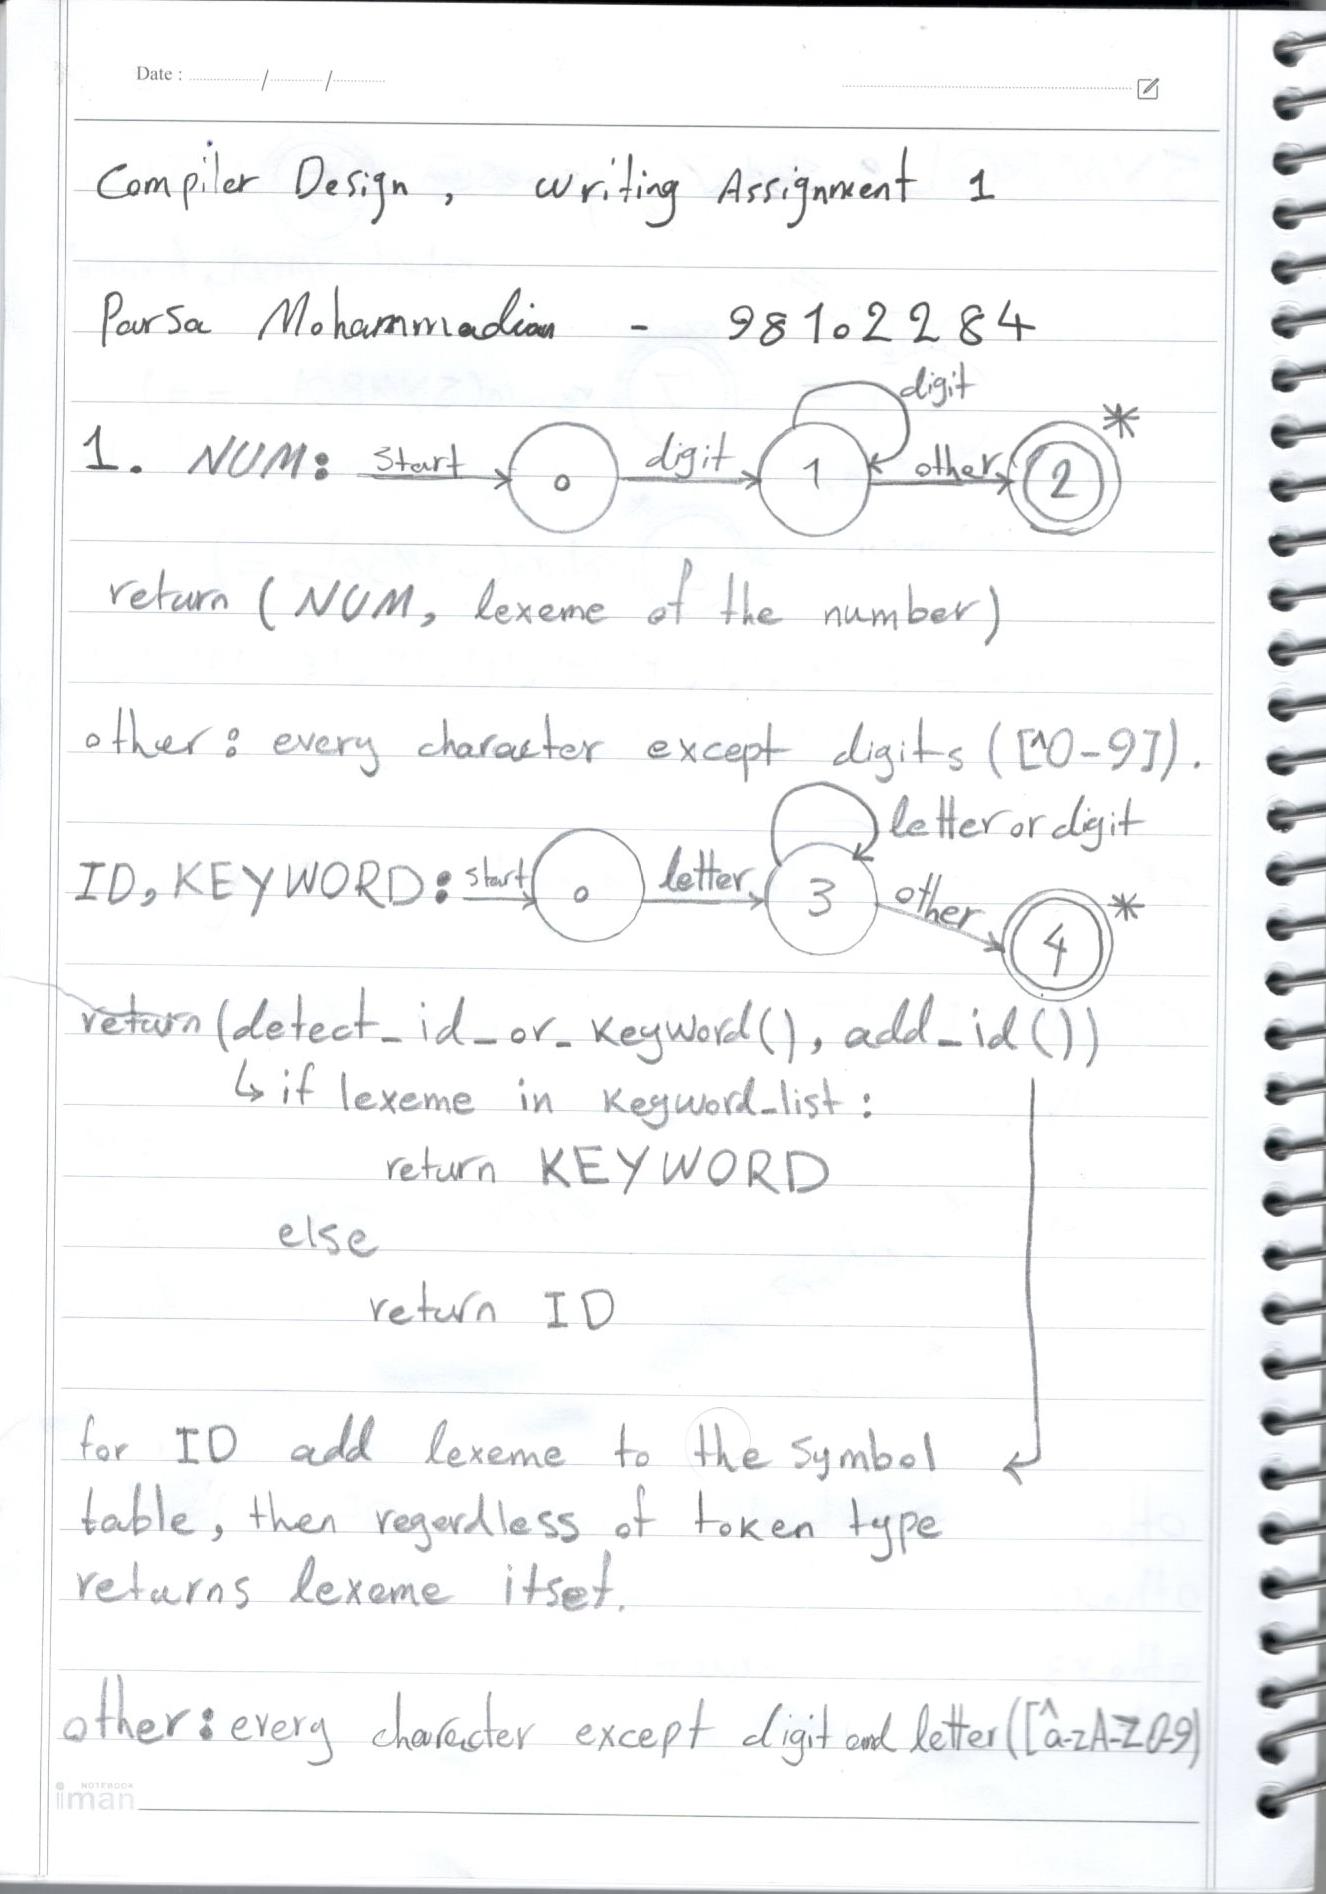 Date : ........ / ........ / ........
Compiler Design, writing Assignment 1
Parsa Mohammadian - 98102284
1. NUM: start 0 digit 1 digit other 2 *
return (NUM, lexeme of the number)
other: every character except digits ([^0-9]).
ID, KEYWORD: start 0 letter 3 letter or digit other 4 *
return (detect_id_or_keyword(), add_id())
↳ if lexeme in keyword_list:
return KEYWORD
else
return ID
for ID add lexeme to the symbol
table, then regardless of token type
returns lexeme itset.
other: every character except digit and letter ([^a-zA-Z0-9)
NOTEBOOK
iman